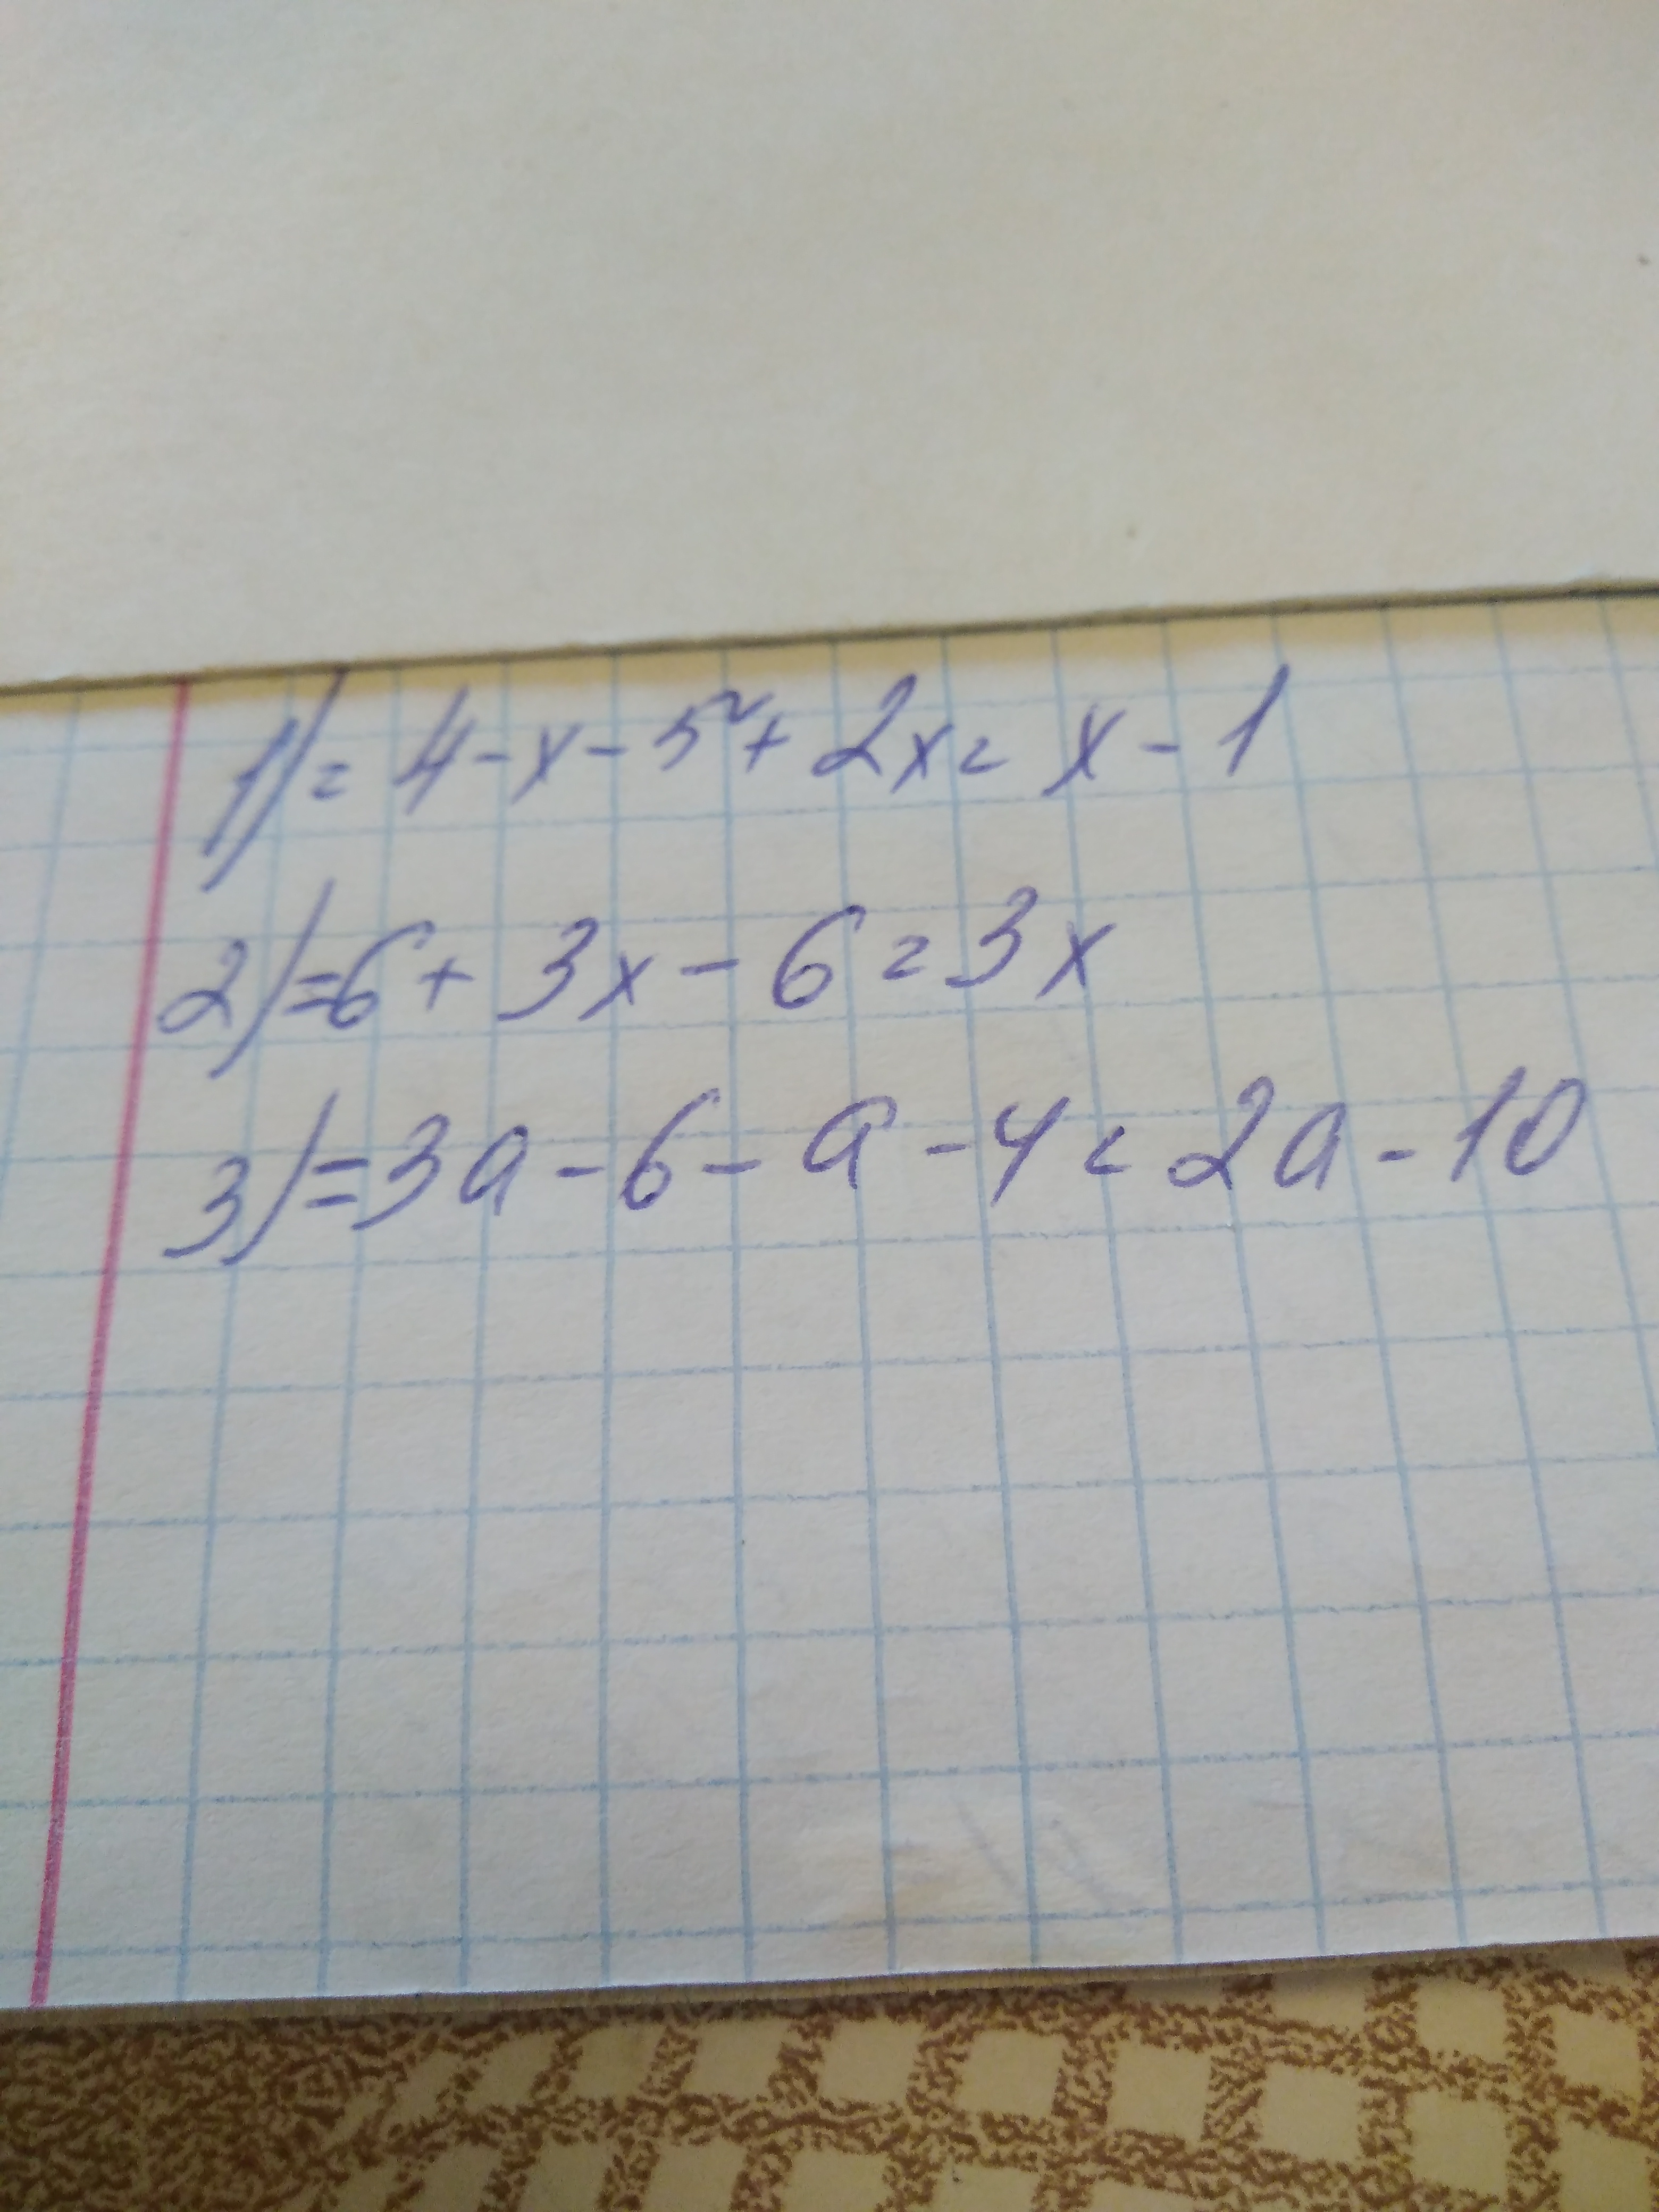 1) = 4 - x - 5 + 2x = x - 1
2) = 6 + 3x - 6 = 3x
3) = 3a - 6 - a - 4 = 2a - 10